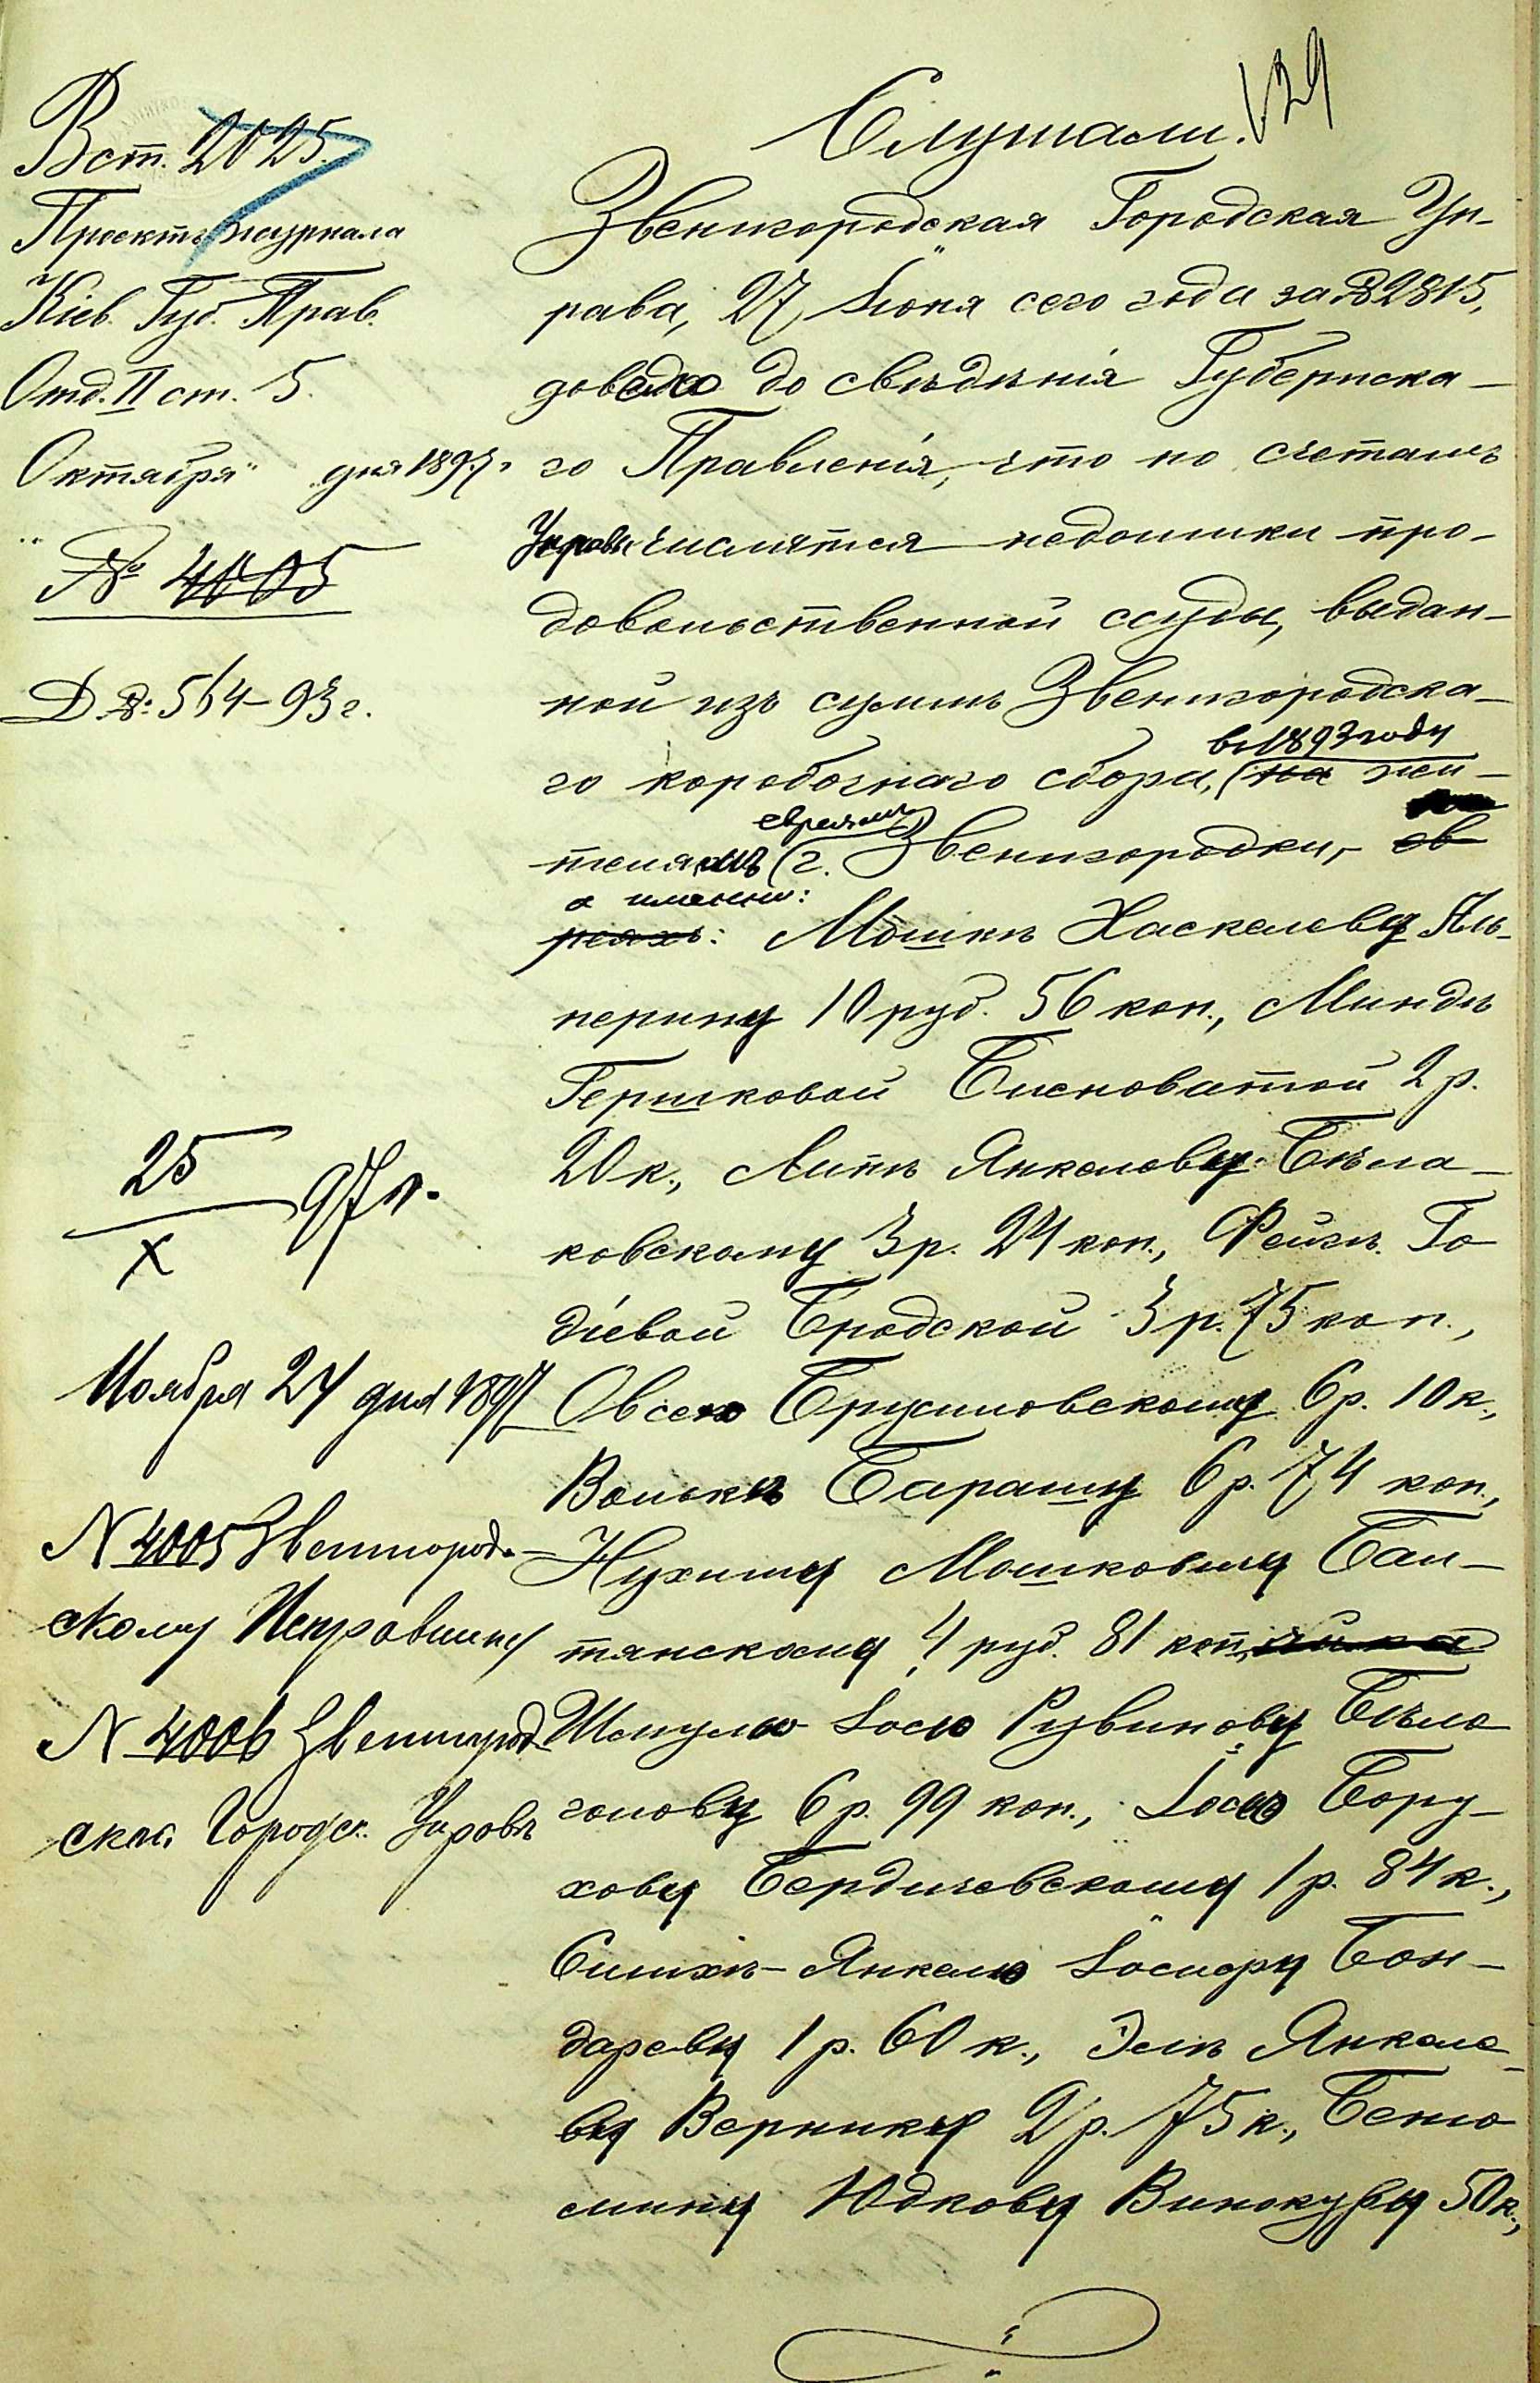 129
Вст. 2025.
Проектъ журнала
Кіев. Губ. Прав.
Отд. II ст. 5.
Октября " дня 1897 г.
№ 4005
Д. №: 564-93 г.
25/X 97 г.
Ноября 24 дня 1897
N 4005 Звенигород-
скому Исправнику
N 4006 Звенигород-
ской Городск. Управѣ
Слушали.
Звенигородская Городская Уп-
рава, 27 Іюня сего года за № 2815,
довела до свѣдѣнія Губернска-
го Правленія, что по счетамъ
Управы числятся недоимки про-
довольственной ссуды, выдан-
ной изъ суммъ Звенигородска-
въ 1893 году
го коробочнаго сбора, (на жи-
евреямъ
телямъ (г. Звенигородки, ев
а именно:
реяхъ: Мошкѣ Хаскелеву Аль-
перину 10 руб. 56 коп., Миндѣ
Гершковой Бисноватой 2 р.
20 к., Липѣ Янкелеву Бѣла-
ковскому 3 р. 24 коп., Фейгѣ Го
діевой Бродской 3 р. 75 коп.,
Овсею Брусиловскому 6 р. 10 к.,
Волькѣ Барашу 6 р. 74 коп.,
Нухиму Мошковичу Бал-
тянскому 4 руб. 81 коп.,
Шмулю Іосю Рувинову Бѣло
голову 6 р. 99 коп., Іосю Бору-
хову Бердичевскому 1 р. 84 к.,
Симхѣ-Янкелю Іосиору Бон-
дареву 1 р. 60 к., Элѣ Янкеле-
ву Вернику 2 р. 75 к., Беню
мину Юдкову Винокуру 50 к.,